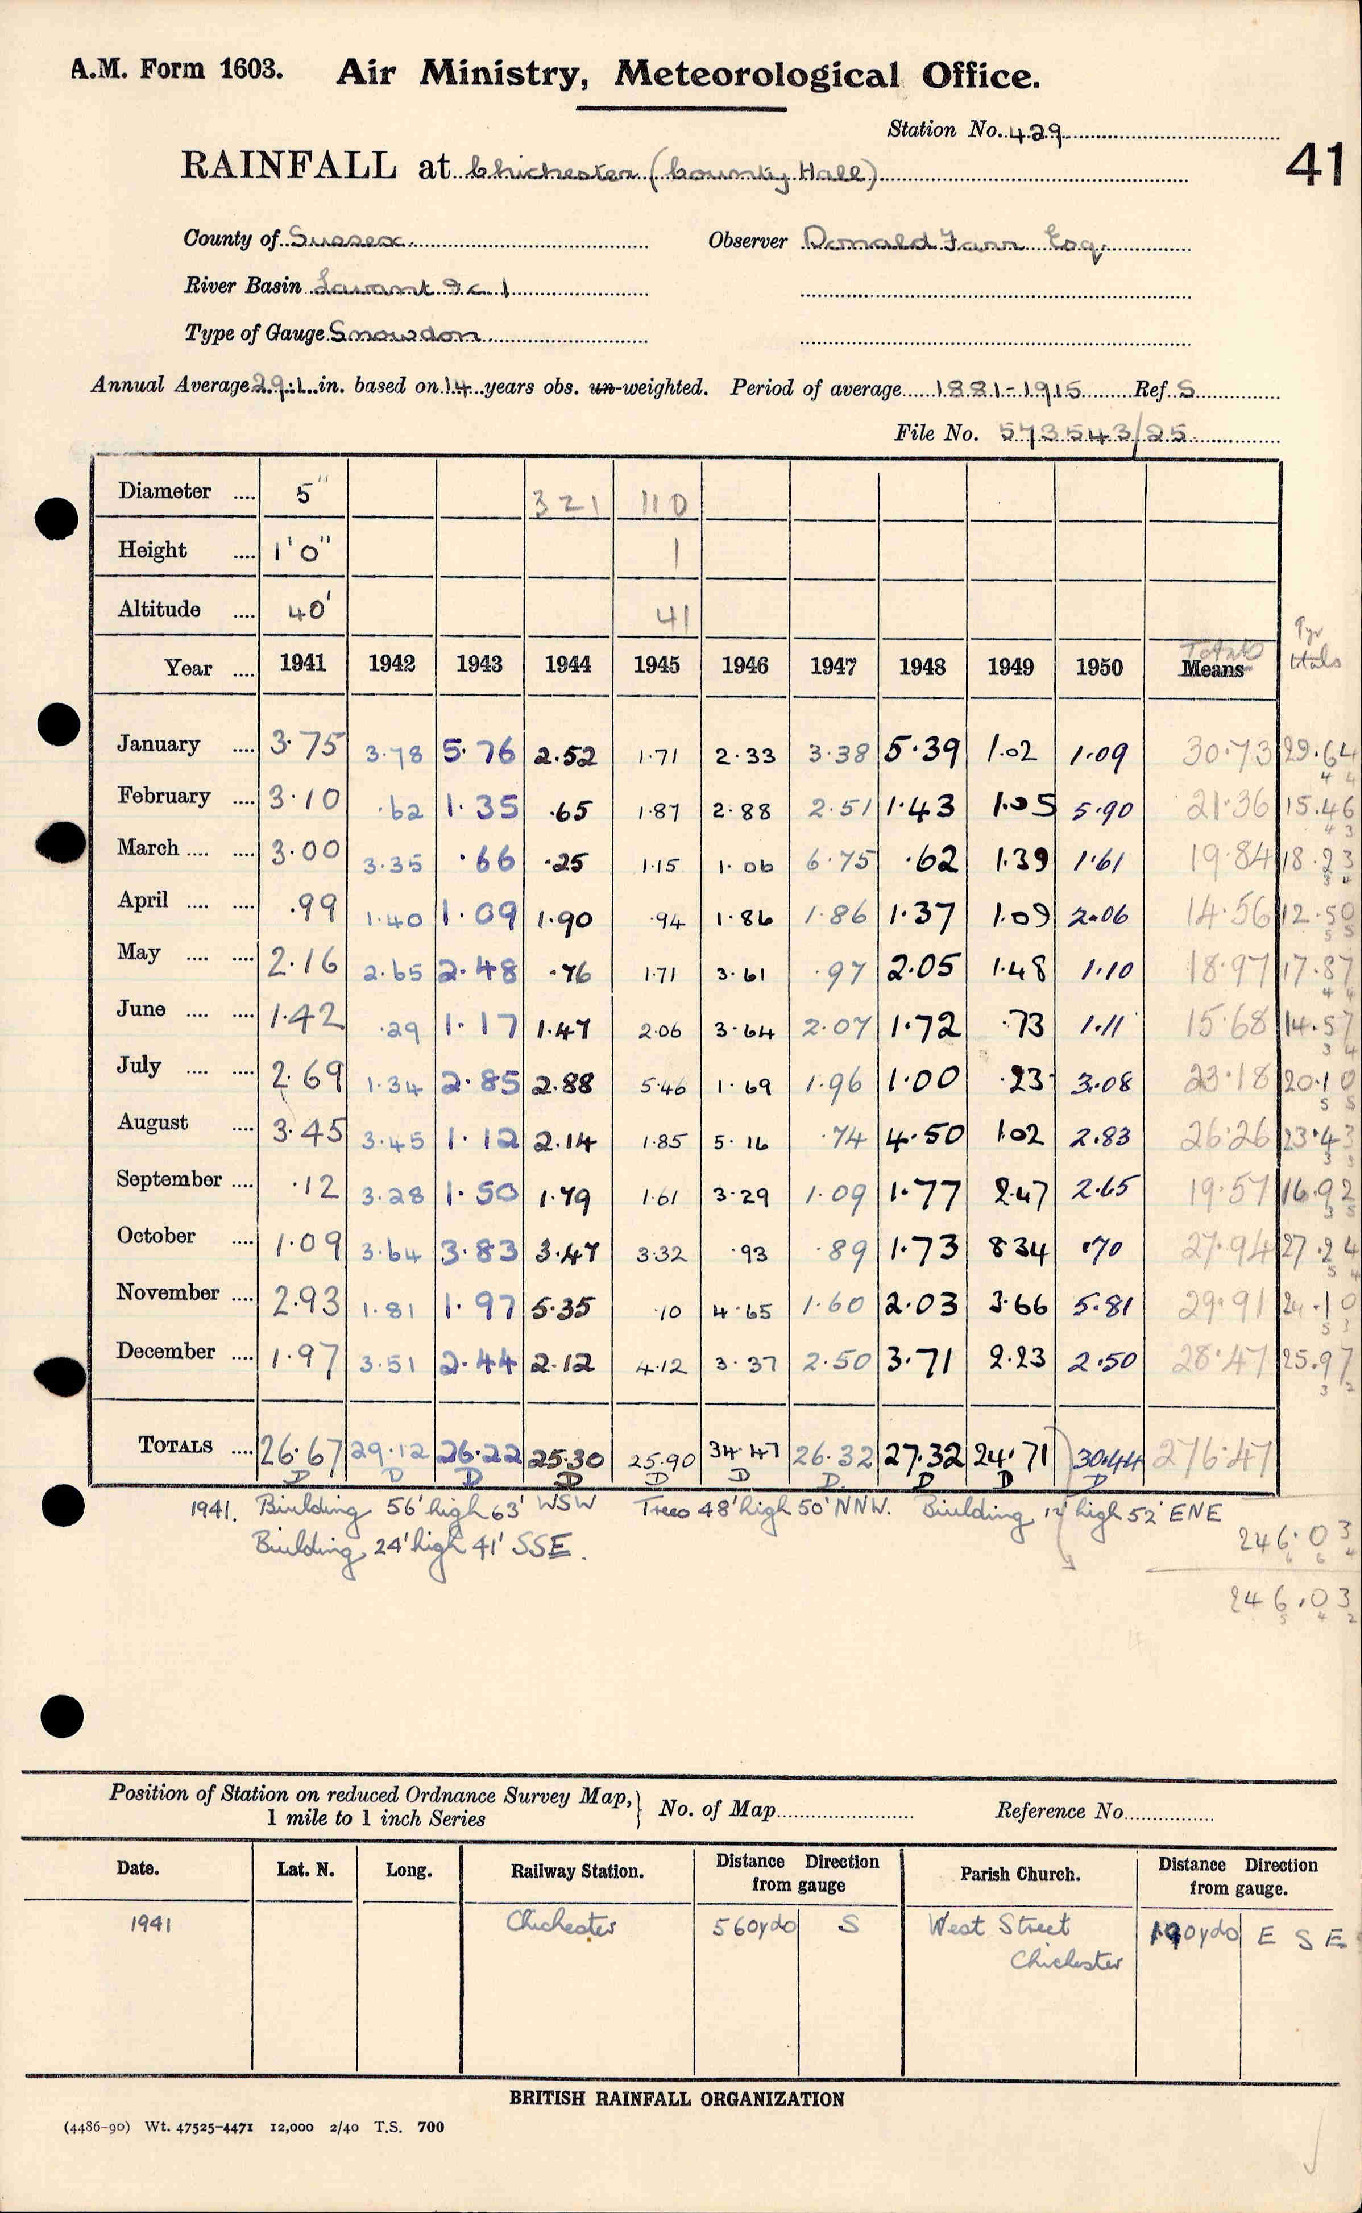 A.M. Form 1603. Air Ministry, Meteorological Office.
Station No. 429
41
RAINFALL at Chichester (County Hall)
County of Sussex. Observer Donald Farr Esq.
River Basin Lavant &c 1
Type of Gauge Snowdon
Annual Average 29.1 in. based on 14 years obs. un-weighted. Period of average 1881-1915 Ref S
File No. 573543/25
Diameter .... 5" 321 110
Height .... 1'0" 1
Altitude .... 40' 41
Year .... 1941 1942 1943 1944 1945 1946 1947 1948 1949 1950 Totals Means 9yr ttals
January .... 3.75 3.78 5.76 2.52 1.71 2.33 3.38 5.39 1.02 1.09 30.73 29.64
February .... 3.10 .62 1.35 .65 1.87 2.88 2.51 1.43 1.05 5.90 21.36 15.46
March .... .... 3.00 3.35 .66 .25 1.15 1.06 6.75 .62 1.39 1.61 19.84 18.23
April .... .... .99 1.40 1.09 1.90 .94 1.86 1.86 1.37 1.09 2.06 14.56 12.50
May .... .... 2.16 2.65 2.48 .76 1.71 3.61 .97 2.05 1.48 1.10 18.97 17.87
June .... .... 1.42 .29 1.17 1.47 2.06 3.64 2.07 1.72 .73 1.11 15.68 14.57
July .... .... 2.69 1.34 2.85 2.88 5.46 1.69 1.96 1.00 .23 3.08 23.18 20.10
August .... 3.45 3.45 1.12 2.14 1.85 5.16 .74 4.50 1.02 2.83 26.26 23.43
September .... .12 3.28 1.50 1.79 1.61 3.29 1.09 1.77 2.47 2.65 19.57 16.92
October .... 1.09 3.64 3.83 3.47 3.32 .93 .89 1.73 8.34 .70 27.94 27.24
November .... 2.93 1.81 1.97 5.35 .10 4.65 1.60 2.03 3.66 5.81 29.91 24.10
December .... 1.97 3.51 2.44 2.12 4.12 3.37 2.50 3.71 2.23 2.50 28.47 25.97
TOTALS .... 26.67 29.12 26.22 25.30 25.90 34.47 26.32 27.32 24.71 30.44 276.47
D D D D D D D. D D D
1941. Building 56' high 63' WSW Trees 48' high 50' NNW. Building 12' high 52' ENE
Building 24' high 41' SSE.
246.03
246.03
Position of Station on reduced Ordnance Survey Map, 1 mile to 1 inch Series } No. of Map Reference No.
Date. Lat. N. Long. Railway Station. Distance Direction from gauge Parish Church. Distance Direction from gauge.
1941 Chichester 560yds S West Street Chichester 190yds E S E
BRITISH RAINFALL ORGANIZATION
(4486-90) Wt. 47525-4471 12,000 2/40 T.S. 700